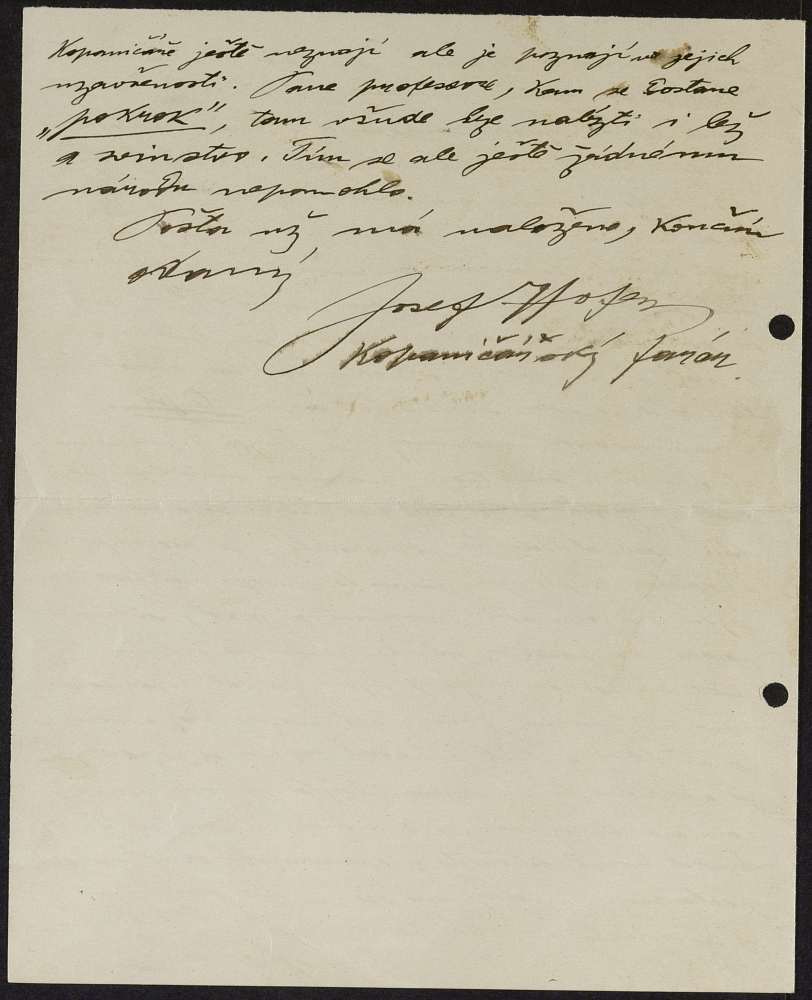 Kopaničáře ještě neznají ale je poznají v jejich
uzavřenosti. Pane professore, kam se dostane
„pokrok", tam všude lze nalézti i lež
a svinstvo. Tím se ale ještě žádnému
národu nepomohlo.
Pošta už má naloženo, končím
oddaný
Josef Hofer
Kopaničářský farář.